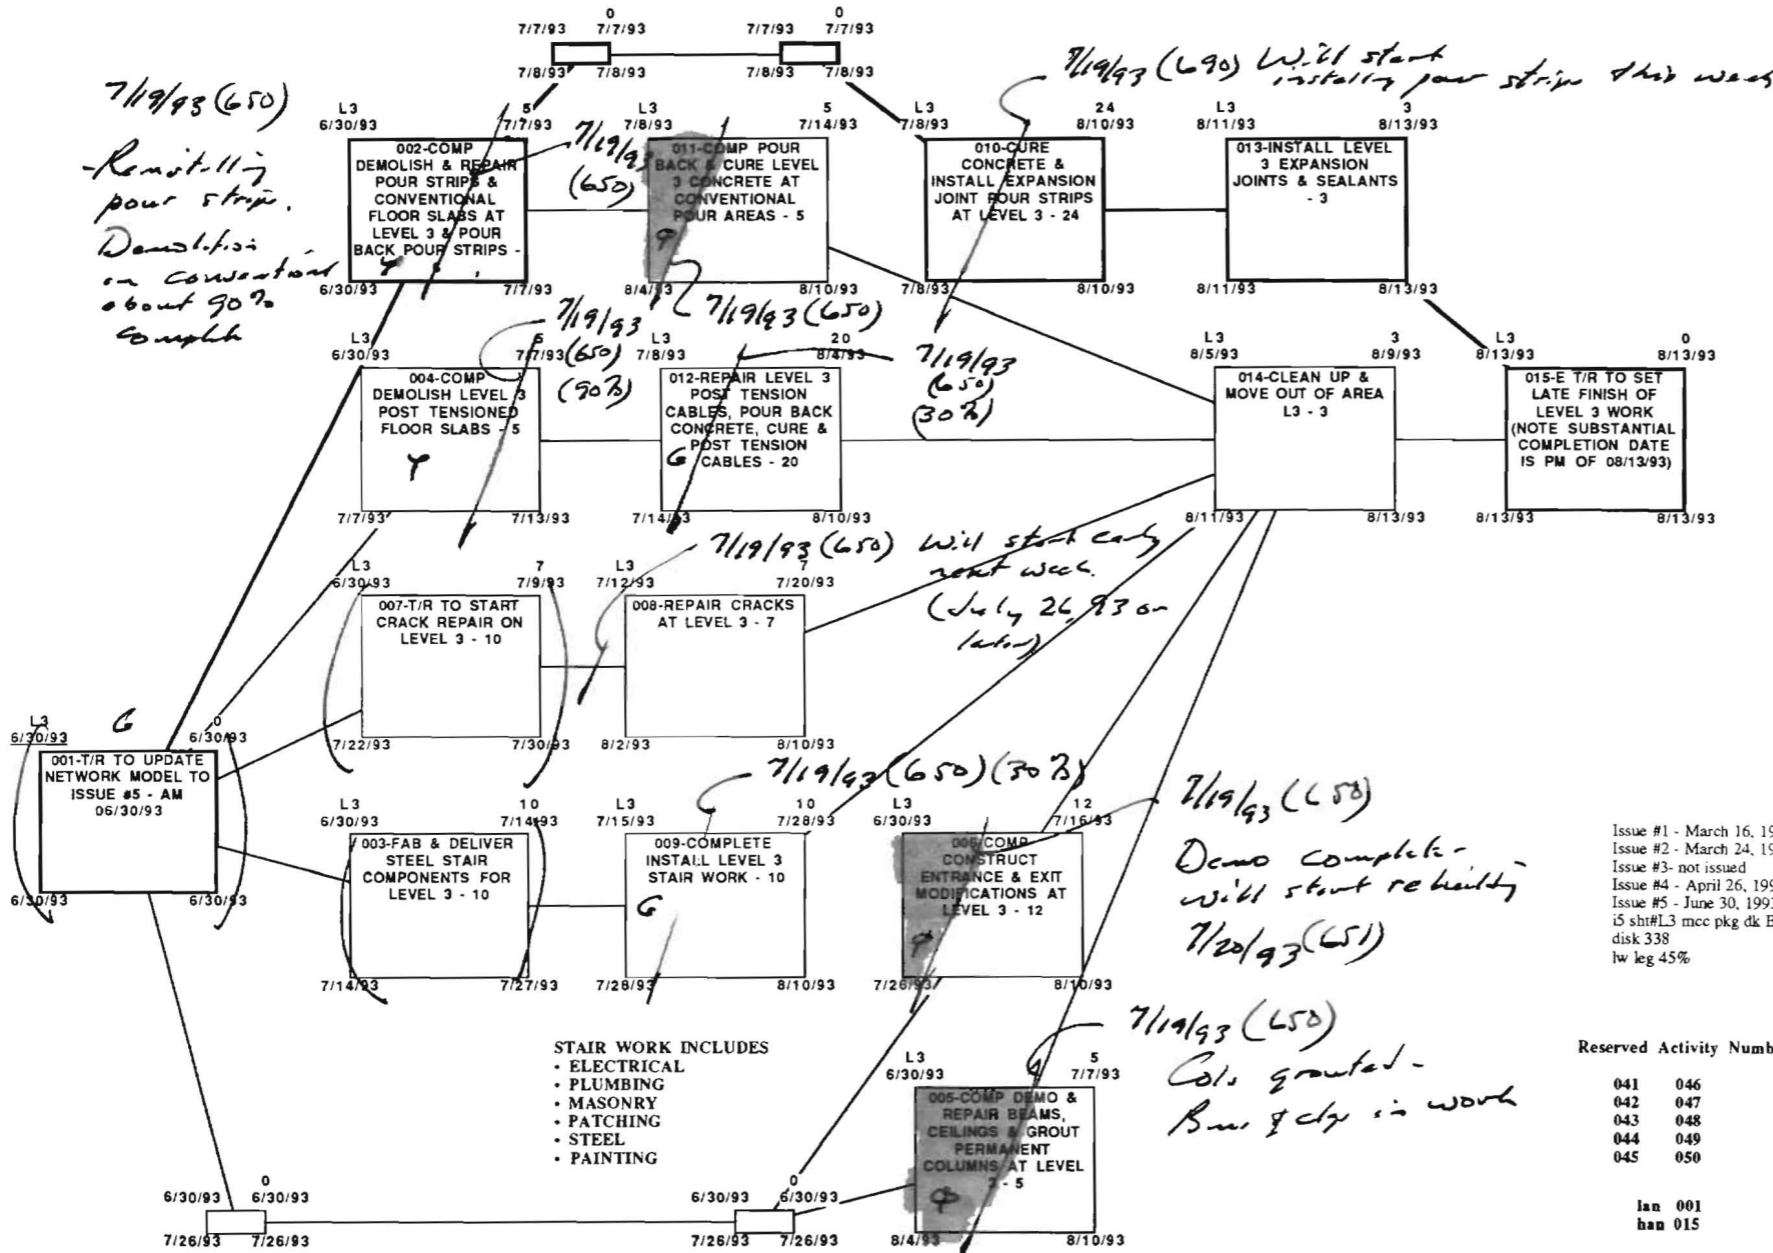 0 0
7/7/93 7/7/93 7/7/93 7/7/93
7/8/93 7/8/93 7/8/93 7/8/93
7/19/93 (650)
7/19/93 (690) Will start
installing pour strips this week
- Reinstalling
pour strips.
Demolition
on conventional
about 90%
complete
L3 5
6/30/93 7/7/93
002-COMP
DEMOLISH & REPAIR
POUR STRIPS &
CONVENTIONAL
FLOOR SLABS AT
LEVEL 3 & POUR
BACK POUR STRIPS -
6/30/93 7/7/93
7/19/93
(650)
L3 5
7/8/93 7/14/93
011-COMP POUR
BACK & CURE LEVEL
3 CONCRETE AT
CONVENTIONAL
POUR AREAS - 5
8/4/93 8/10/93
7/19/93 (650)
L3 24
7/8/93 8/10/93
010-CURE
CONCRETE &
INSTALL EXPANSION
JOINT POUR STRIPS
AT LEVEL 3 - 24
7/8/93 8/10/93
L3 3
8/11/93 8/13/93
013-INSTALL LEVEL
3 EXPANSION
JOINTS & SEALANTS
- 3
8/11/93 8/13/93
L3 5
6/30/93 7/7/93
004-COMP
DEMOLISH LEVEL 3
POST TENSIONED
FLOOR SLABS - 5
7/7/93 7/13/93
7/19/93
(650)
(90%)
L3 20
7/8/93 8/4/93
012-REPAIR LEVEL 3
POST TENSION
CABLES, POUR BACK
CONCRETE, CURE &
POST TENSION
CABLES - 20
G
7/14/93 8/10/93
7/19/93
(650)
(30%)
L3 3
8/5/93 8/9/93
014-CLEAN UP &
MOVE OUT OF AREA
L3 - 3
8/11/93 8/13/93
L3 0
8/13/93 8/13/93
015-E T/R TO SET
LATE FINISH OF
LEVEL 3 WORK
(NOTE SUBSTANTIAL
COMPLETION DATE
IS PM OF 08/13/93)
8/13/93 8/13/93
L3 7
6/30/93 7/9/93
007-T/R TO START
CRACK REPAIR ON
LEVEL 3 - 10
7/22/93 7/30/93
7/19/93 (650) Will start early
next week.
(July 26, 93 or
later)
L3 7
7/12/93 7/20/93
008-REPAIR CRACKS
AT LEVEL 3 - 7
8/2/93 8/10/93
G
L3 0
6/30/93 6/30/93
001-T/R TO UPDATE
NETWORK MODEL TO
ISSUE #5 - AM
06/30/93
6/30/93 6/30/93
L3 10
6/30/93 7/14/93
003-FAB & DELIVER
STEEL STAIR
COMPONENTS FOR
LEVEL 3 - 10
7/14/93 7/27/93
7/19/93 (650) (30%)
L3 10
7/15/93 7/28/93
009-COMPLETE
INSTALL LEVEL 3
STAIR WORK - 10
G
7/28/93 8/10/93
L3 12
6/30/93 7/16/93
006-COMP
CONSTRUCT
ENTRANCE & EXIT
MODIFICATIONS AT
LEVEL 3 - 12
7/26/93 8/10/93
7/19/93 (650)
Demo complete -
will start rebuilding
7/20/93 (651)
Issue #1 - March 16, 19
Issue #2 - March 24, 19
Issue #3- not issued
Issue #4 - April 26, 199
Issue #5 - June 30, 1993
i5 sht#L3 mcc pkg dk B
disk 338
lw leg 45%
STAIR WORK INCLUDES
• ELECTRICAL
• PLUMBING
• MASONRY
• PATCHING
• STEEL
• PAINTING
L3 5
6/30/93 7/7/93
005-COMP DEMO &
REPAIR BEAMS,
CEILINGS & GROUT
PERMANENT
COLUMNS AT LEVEL
3 - 5
8/4/93 8/10/93
7/19/93 (650)
Cols grouted -
in work
Reserved Activity Numb
041 046
042 047
043 048
044 049
045 050
lan 001
han 015
0 0
6/30/93 6/30/93 6/30/93 6/30/93
7/26/93 7/26/93 7/26/93 7/26/93